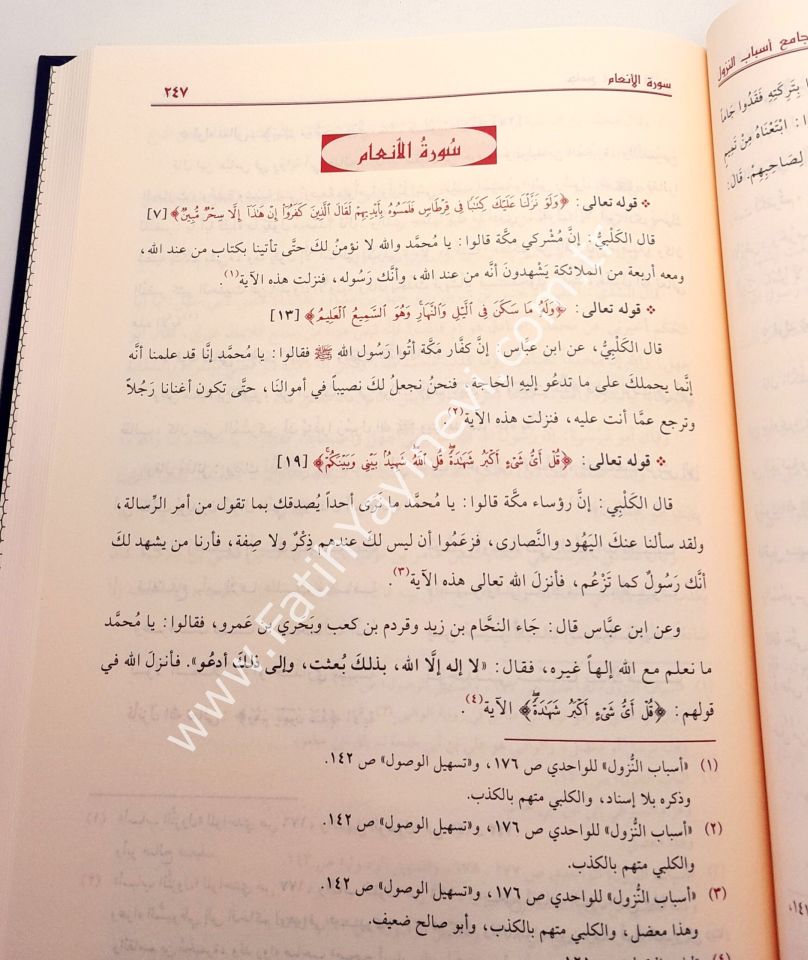 سورة الأنعام
٢٤٧
سُورَةُ الأنعام
❖ قوله تعالى: ﴿وَلَوْ نَزَّلْنَا عَلَيْكَ كِتَٰبًا فِى قِرْطَاسٍ فَلَمَسُوهُ بِأَيْدِيهِمْ لَقَالَ ٱلَّذِينَ كَفَرُوٓا۟ إِنْ هَٰذَآ إِلَّا سِحْرٌ مُّبِينٌ﴾ [٧]
قال الكَلْبيُّ: إنَّ مُشْركي مكَّة قالوا: يا مُحمَّد والله لا نؤمنُ لكَ حتَّى تأتينا بكتاب من عند الله،
ومعه أربعة من الملائكة يَشْهدونَ أنَّه من عند الله، وأنَّك رَسُوله، فنزلت هذه الآية(١).
❖ قوله تعالى: ﴿وَلَهُۥ مَا سَكَنَ فِى ٱلَّيْلِ وَٱلنَّهَارِ ۚ وَهُوَ ٱلسَّمِيعُ ٱلْعَلِيمُ﴾ [١٣]
قال الكَلْبيُّ، عن ابن عبَّاس: إنَّ كفَّار مكَّة أتُوا رَسُول الله ﷺ فقالوا: يا مُحمَّد إنَّا قد علمنا أنَّه
إنَّما يحملكَ على ما تدعُو إليهِ الحاجة، فنحنُ نجعلُ لكَ نصيباً في أموالنَا، حتَّى تكون أغنانا رَجُلاً
وترجع عمَّا أنت عليه، فنزلت هذه الآية(٢).
❖ قوله تعالى: ﴿قُلْ أَىُّ شَىْءٍ أَكْبَرُ شَهَٰدَةً ۖ قُلِ ٱللَّهُ ۖ شَهِيدٌۢ بَيْنِى وَبَيْنَكُمْ ۚ﴾ [١٩]
قال الكَلْبِي: إنَّ رؤساء مكَّة قالوا: يا مُحمَّد ما نَرَى أحداً يُصدقك بما تقول من أمر الرِّسالة،
ولقد سألنا عنكَ اليَهُود والنَّصارى، فزعَمُوا أن ليس لكَ عندهم ذِكْرٌ ولا صِفة، فأرنا من يشهد لكَ
أنَّك رَسُولٌ كما تَزْعُم، فأنزلَ الله تعالى هذه الآية(٣).
وعن ابن عبَّاس قال: جَاء النحَّام بن زيد وقردم بن كعب وبَحْري بن عَمرو، فقالوا: يا مُحمَّد
ما نعلم مع الله إلهاً غيره، فقال: «لا إله إلَّا الله، بذلكَ بُعثت، وإلى ذلكَ أدعُو». فأنزلَ الله في
قولهم: ﴿قُلْ أَىُّ شَىْءٍ أَكْبَرُ شَهَٰدَةً ۖ﴾ الآية(٤).
(١) «أسباب النُّزول» للواحدي ص ١٧٦، و«تسهيل الوصول» ص ١٤٢.
وذكره بلا إسناد، والكلبي متهم بالكذب.
(٢) «أسباب النُّزول» للواحدي ص ١٧٦، و«تسهيل الوصول» ص ١٤٢.
والكلبي متهم بالكذب.
(٣) «أسباب النُّزول» للواحدي ص ١٧٦، و«تسهيل الوصول» ص ١٤٢.
وهذا معضل، والكلبي متهم بالكذب، وأبو صالح ضعيف.
(٤)
جامع أسباب النزول
بِتَركتِهِ فَقَدُوا جَاماً
ابْتَعْنَاهُ مِنْ تَميم
لِصَاحِبِهِمْ. قَالَ:
www.FatihYayinevi.com.tr